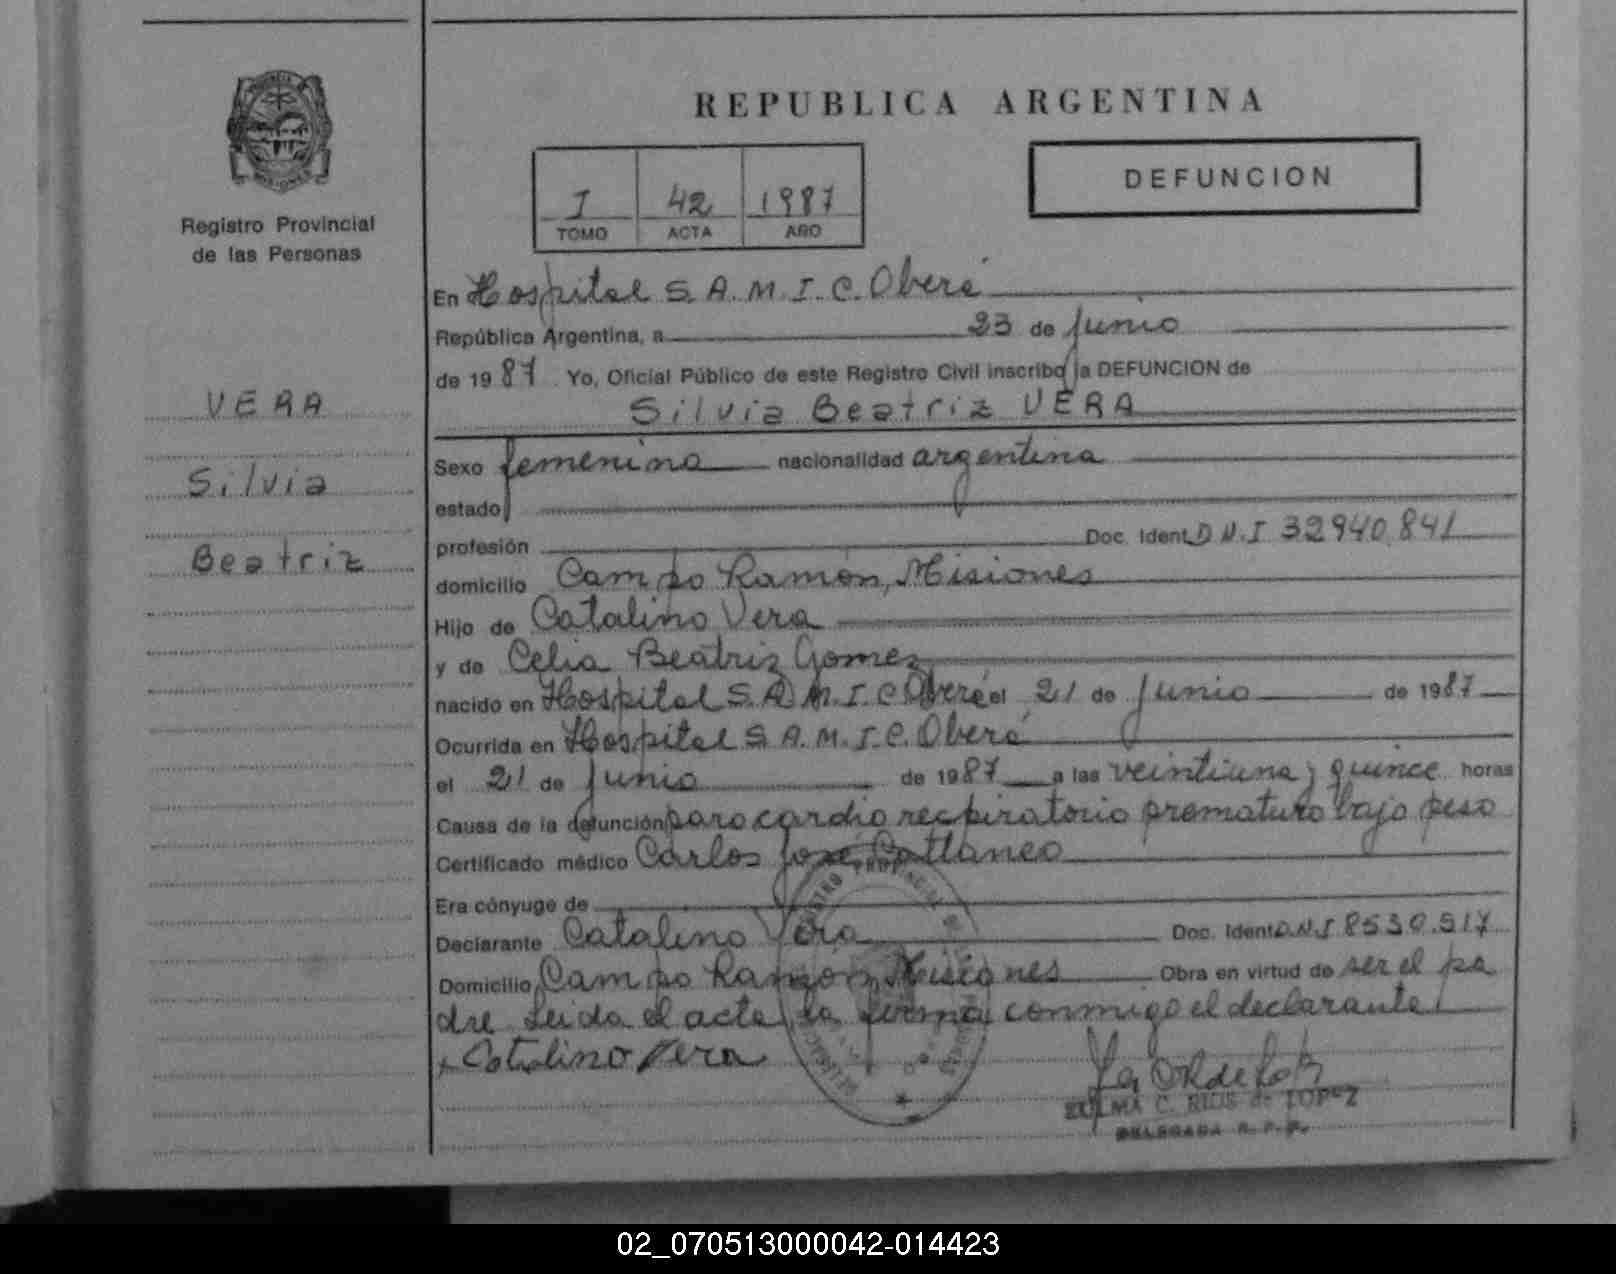 PROVINCIA
MISIONES
Registro Provincial
de las Personas
VERA
Silvia
Beatriz
REPUBLICA ARGENTINA
I 42 1987
TOMO ACTA AÑO
DEFUNCION
En Hospital S.A.M.I.C. Oberá
República Argentina, a 23 de junio
de 1987 Yo, Oficial Público de este Registro Civil inscribo la DEFUNCION de
Silvia Beatriz VERA
Sexo femenino nacionalidad argentina
estado
profesión Doc. Ident D.N.I 32940.841
domicilio Campo Ramón, Misiones
Hijo de Catalino Vera
y de Celia Beatriz Gomez
nacido en Hospital S.A.M.I.C Oberá el 21 de junio de 1987
Ocurrida en Hospital S.A.M.I.C. Oberá
el 21 de junio de 1987 a las veintiuna y quince horas
Causa de la defunción paro cardio recpiratorio prematuro bajo peso
Certificado médico Carlos José Cattaneo
Era cónyuge de
Declarante Catalino Vera Doc. Ident D.N.I 8530.517
Domicilio Campo Ramón, Misiones Obra en virtud de ser el pa
dre Leida el acta la firma conmigo el declarante
x Catalino Vera
ZULMA C. RIOS de LOPEZ
DELEGADA R. P. P.
02_070513000042-014423